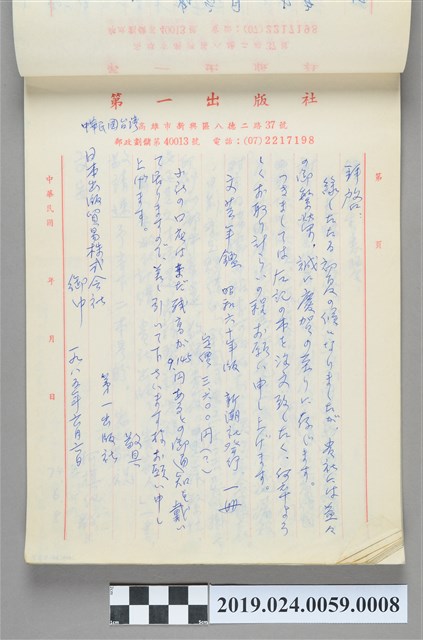 第一出版社
中華民国台湾
高雄市新興區八德二路37號
郵政劃儲第40013號 電話:(07)2217198
第 頁
拝啓:
緑したたる初夏の候になりましたが、貴社には益々
の御繁栄、誠に慶賀の至りに存じます。
つきましては左記の本を注文致したく、何卒よろ
しくお取り計らいの程お願い申し上げます。
文芸年鑑 昭和六十年版 新潮社発行 一冊
定価 三六〇〇円(?)
小社の口座は未だ残高が 円あるとの御通知を戴い
て居りますので、差し引いて下さいます様お願い申し
上げます。
敬具
第一出版社
日本出版貿易株式会社 御中
一九八五年六月六日
中華民國 年 月 日
2019.024.0059.0008